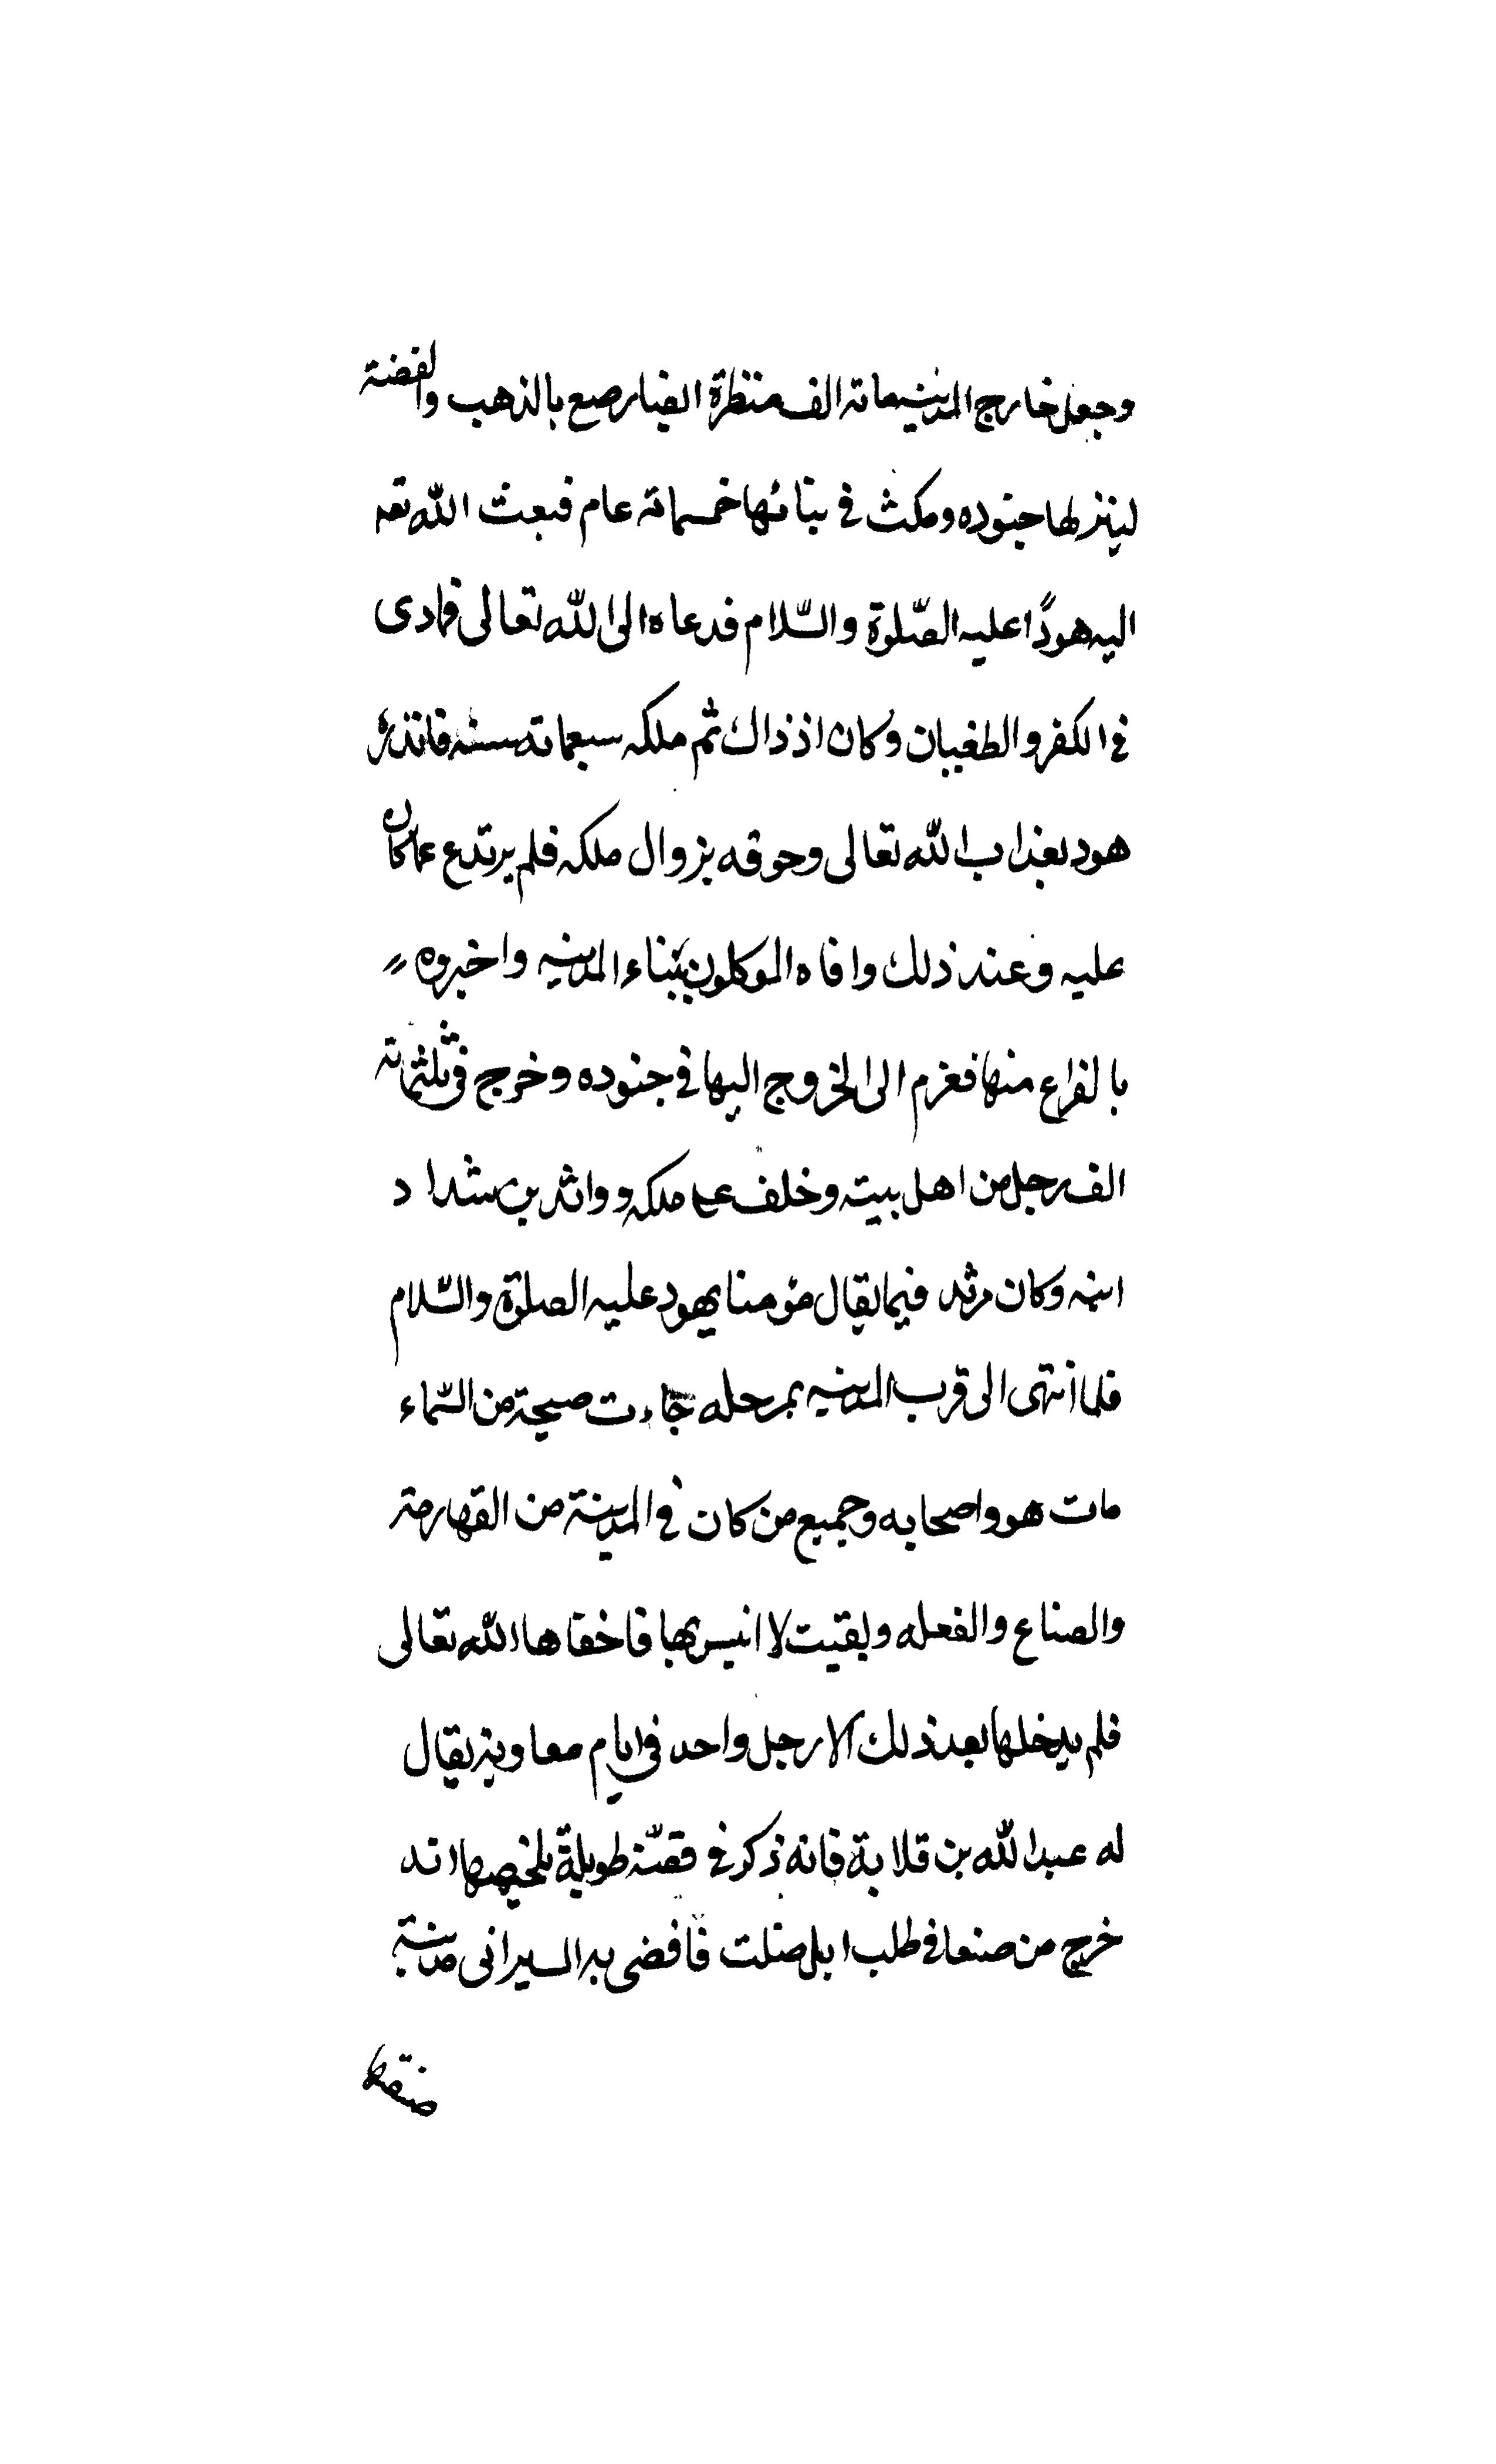 وجعل خارج المدينه مائة الف منظرة ايضا رصع بالذهب والفضة
لينزلها جنوده ومكث في بنائها خمسمائة عام فبعث الله تعه
اليه هودًا عليه الصّلوة والسّلام فدعاه الى الله تعالى فمادى
في الكفر والطغيان وكان اذ ذاك ثم ملكه سبعمائة سنه فانذره
هود بعذاب الله تعالى وحوقه بزوال ملكه فلم يرتدع عما كان
عليه وعند ذلك وافاه الموكلون ببناء المدينه واخبروه
بالفراع منها فعزم الى الخروج اليها في جنوده وخرج في ثلثمائة
الف رجل من اهل بيته وخلف على ملكه ووائد بن شداد
ابنه وكان مرثد فيما يقال مؤمنا بهود عليه الصلوة والسّلام
فلما انتهى الى قرب المدينه بمرحله جاءت صيحة من السّماء
مات هو واصحابه وجميع من كان في المدينة من القهارمة
والصناع والفعله وبقيت لا انيس بها فاخفاها الله تعالى
فلم يدخلها بعد ذلك الا رجل واحد في ايام معاوية يقال
له عبد الله بن قلابة فانه ذكر في قصّة طويلة تلخيصها انه
خرج من صنعا في طلب ابل ضلت فافضى به السير انى مدينة